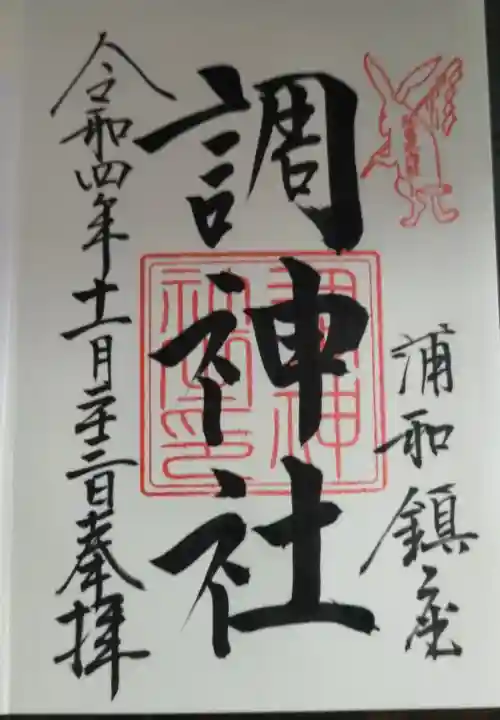 浦和鎮座
調神社
調神社印
令和四年十一月二十三日奉拝